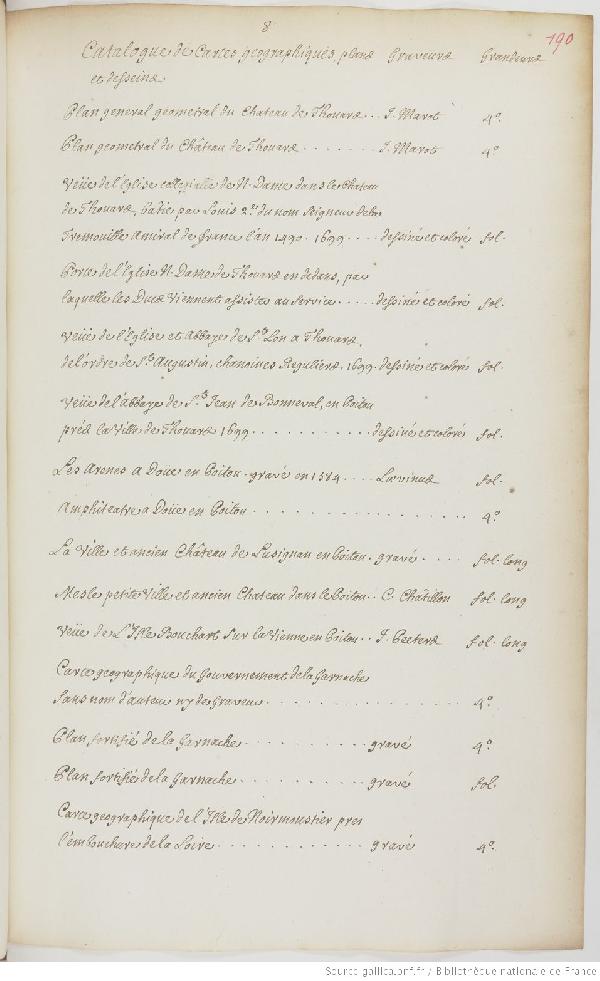 8
190
Catalogue de Cartes geographiques, plans Graveurs Grandeurs
et desseins
Plan general geometral du Chateau de Thouars . . J. Marot 4°.
Plan geometral du Château de Thouars . . . . . . . J. Marot 4°
Veüe de l'Eglise collegialle de N. Dame dans le Chateau
de Thouars, batie par Louis 2d. du nom Seigneur de la
Tremouille Amiral de france l'an 1490. 1699 . . . . dessiné et coloré fol.
Porte de l'Eglise N. Dame de Thouars en dedans, par
laquelle les Ducs Viennent assister au Service . . . . . dessiné et coloré fol.
Veüe de l'Eglise et Abbaye de St. Lon a Thouars,
de l'ordre de St. Augustin, chanoines Reguliers, 1699. dessiné et coloré fol.
Veüe de l'abbaye de St. Jean de Bonneval, en Poitou
prés la Ville de Thouars 1699 . . . . . . . . . . . dessiné et coloré fol.
Les Arenes a Doüe en Poitou. gravé en 1584 . . . . Lævinus fol.
Amphiteatre a Doüe en Poitou . . . . . . . . . . . . . . . . . 4°
La Ville et ancien Château de Lusignan en Poitou. gravé . . . . . fol. long
Mesle petite Ville et ancien Chateau dans le Poitou . . C. Châtillon fol. long
Veüe de L'Isle Bouchart sur la Vienne en Poitou . . J. Peeters fol. long
Carte geographique du Gouvernement de la Garnache
sans nom d'auteur ny de Graveur . . . . . . . . . . . . . . . 4°
Plan fortifié de la Garnache . . . . . . . . . . gravé 4°
Plan fortifié de la Garnache . . . . . . . . . . gravé fol.
Carte geographique de l'Isle de Noirmoustier pres
l'embouchure de la Loire . . . . . . . . . . . . gravé 4°.
Source gallica.bnf.fr / Bibliothèque nationale de France